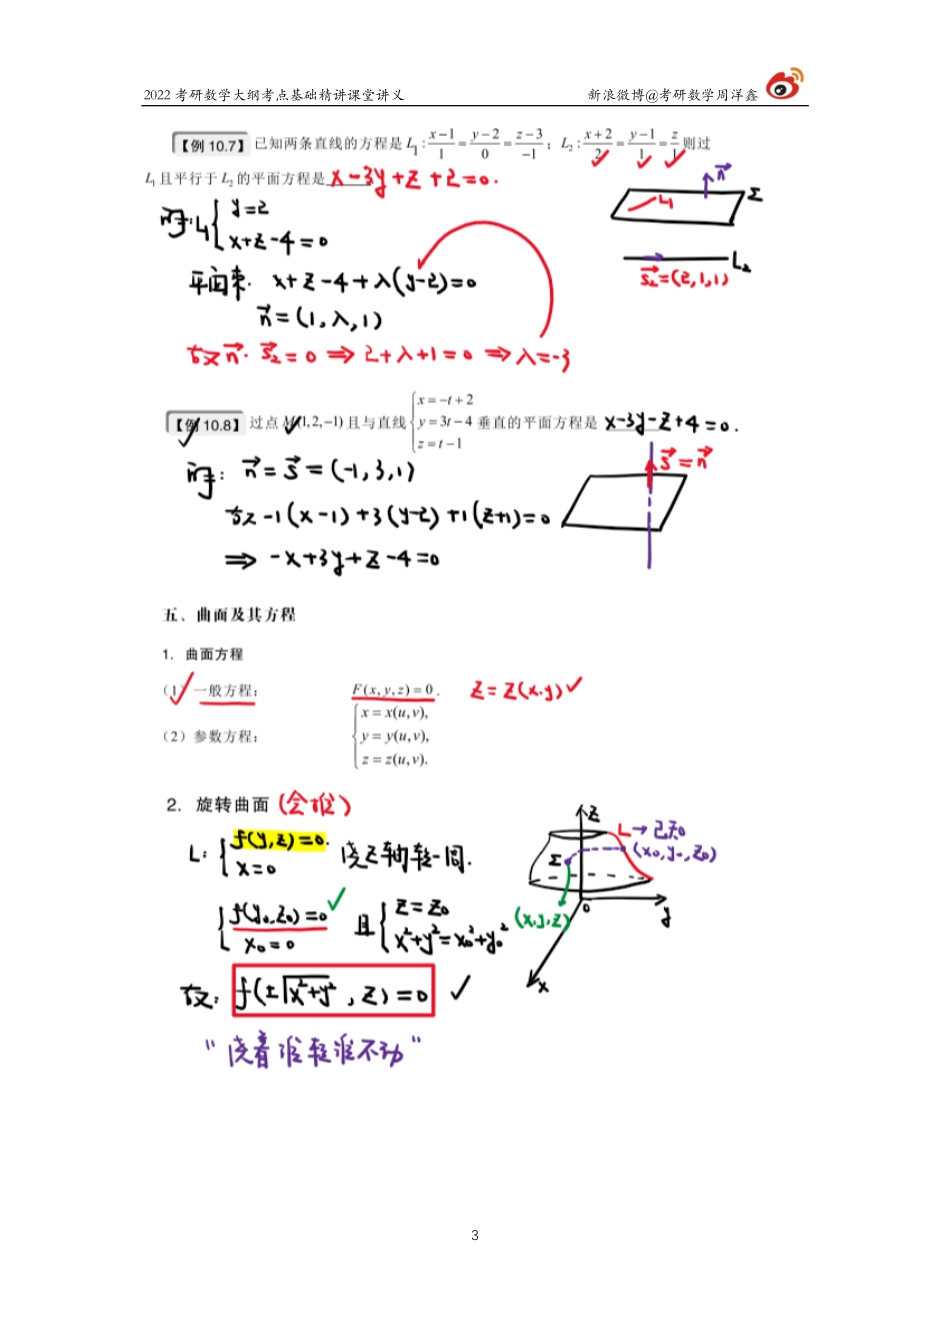 2022 考研数学大纲考点基础精讲课堂讲义 新浪微博@考研数学周洋鑫
【例 10.7】 已知两条直线的方程是 L₁ : (x−1)/1 = (y−2)/0 = (z−3)/−1 ; L₂ : (x+2)/2 = (y−1)/1 = z/1 则过
L₁ 且平行于 L₂ 的平面方程是 x−3y+z+2=0.
解: L₁ { y=2
x+z−4=0
平面束. x+z−4+λ(y−2)=0
n⃗=(1,λ,1)
故 n⃗·s⃗₂=0 ⇒ 2+λ+1=0 ⇒ λ=−3
n⃗
Σ
L₁
L₂
s⃗₂=(2,1,1)
【例 10.8】 过点 M(1,2,−1) 且与直线 { x=−t+2 y=3t−4 z=t−1 垂直的平面方程是 x−3y−z+4=0.
解: n⃗=s⃗=(−1,3,1)
s⃗=n⃗
故 −1(x−1)+3(y−2)+1(z+1)=0
⇒ −x+3y+z−4=0
五、曲面及其方程
1. 曲面方程
(1) 一般方程: F(x,y,z)=0. z=z(x,y)✓
(2) 参数方程: { x=x(u,v), y=y(u,v), z=z(u,v).
2. 旋转曲面 (会推)
L: { f(y,z)=0.
x=0
绕z轴转一周.
{ f(y₀,z₀)=0 ✓
x₀=0
且 { z=z₀
x²+y²=x₀²+y₀²
故: f(±√(x²+y²), z)=0 ✓
“绕着谁转谁不动”
z
L→已知
(x₀,y₀,z₀)
Σ
(x,y,z)
o
y
x
3